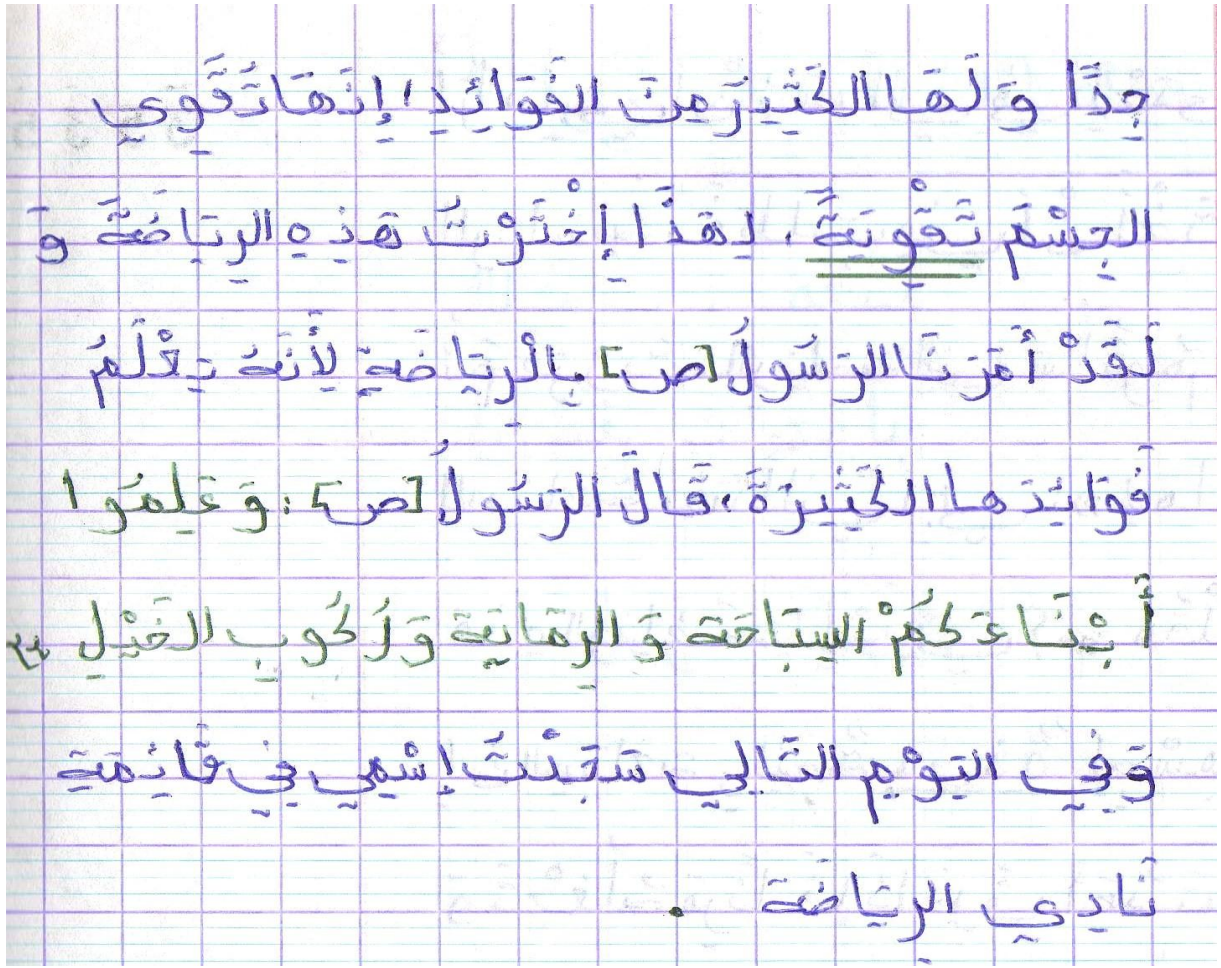 جِدًّا وَ لَهَا الكَثِيرَ مِنَ الفَوَائِدِ؛ إِنَهَا تُقَوِي
الجِسْمَ تَقْوِيَةً، لِهَذَا إِخْتَرْتُ هَذِهِ الرِيَاضَةَ وَ
لَقَدْ أَمَرَنَا الرَسُولُ [ص] بِالْرِيَاضَةِ لِأَنَهُ يَعْلَمُ
فَوَائِدَها الكَثِيرَةَ، قَالَ الرَسُولُ [ص]: وَ عَلِمُوا
أَبْنَاءَكُمْ السِبَاحَة وَ الرِمَايَة وَ رُكُوبِ الخَيْلِ "
وَ فِي اليَوْمِ التَالِي سَجَدْتُ إِسْمِي فِي قَائِمَةِ
نَادِي الرِيَاضَة .